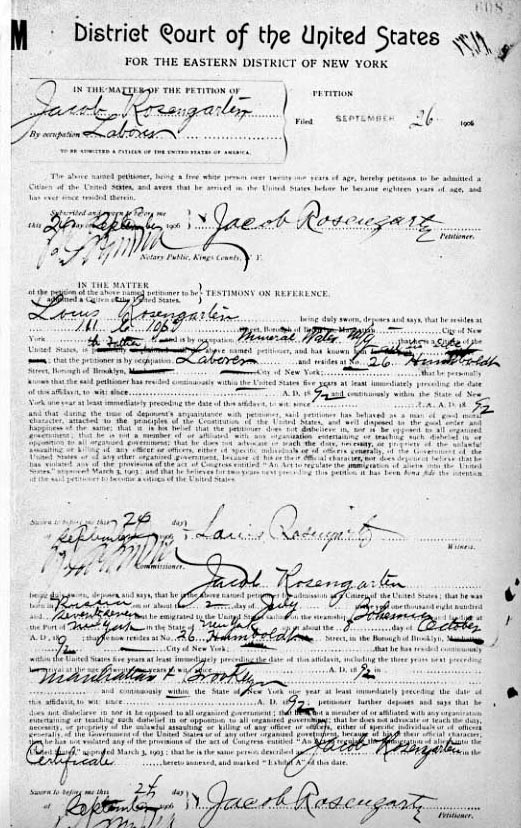 M
District Court of the United States
FOR THE EASTERN DISTRICT OF NEW YORK
IN THE MATTER OF THE PETITION OF
Jacob Rosengarten
By occupation Laborer
TO BE ADMITTED A CITIZEN OF THE UNITED STATES OF AMERICA.
PETITION
Filed SEPTEMBER 26 1906
The above named petitioner, being a free white person over twenty-one years of age, hereby petitions to be admitted a
Citizen of the United States, and avers that he arrived in the United States before he became eighteen years of age, and
has ever since resided therein.
Subscribed and sworn to before me
this 26 day of September 1906
Jacob Rosengartz
Petitioner.
Notary Public, Kings County, N. Y.
IN THE MATTER
of the petition of the above named petitioner to be
admitted a Citizen of the United States.
TESTIMONY ON REFERENCE.
Louis Rosengarten being duly sworn, deposes and says, that he resides at
161 E 106 Street, Borough of City of New
York and is by occupation Mineral Water Mfg Citizen of the
United States, is above named petitioner, and has known him
that the petitioner is by occupation, Laborer and resides at No. 26 Humboldt
Street, Borough of Brooklyn, City of New York that he personally
knows that the said petitioner has resided continuously within the United States five years at least immediately preceding the date
of this affidavit, to wit: since A. D. 1892 and continuously within the State of New
York one year at least immediately preceding the date of this affidavit, to wit: since A. D. 1892
and that during the time of deponent's acquaintance with petitioner, said petitioner has behaved as a man of good moral
character, attached to the principles of the Constitution of the United States, and well disposed to the good order and
happiness of the same; that it is his belief that the petitioner does not disbelieve in, nor is he opposed to all organized
government; that he is not a member of or affiliated with any organization entertaining or teaching such disbelief in or
opposition to all organized government; that he does not advocate or teach the duty, necessity, or propriety of the unlawful
assaulting or killing of any officer or officers, either of specific individuals or of officers generally, of the Government of the
United States or of any other organized government, because of his or their official character, nor does deponent believe that he
has violated any of the provisions of the act of Congress entitled "An Act to regulate the immigration of aliens into the United
States," approved March 3, 1903; and that he believes for two years next preceding this petition it has been bona fide the intention
of the said petitioner to become a citizen of the United States.
Sworn to before me this 26 day
of September 1906
Louis Rosengartz
Witness.
Commissioner.
Jacob Rosengarten
being duly sworn, deposes and says, that he is the above named petitioner for admission as a Citizen of the United States; that he was
born in Russia on or about the 2 day of July one thousand eight hundred
and seventy seven that he emigrated to the United States, sailing on the steamship Bohemia and landed at
the Port of New York in the State of New York on or about the 8 October
A. D., 1892; that he now resides at No. 26 Humboldt Street, in the Borough of Brooklyn,
City of New York that he has resided continuously
within the United States five years at least immediately preceding the date of this affidavit, including the three years next preceding
A. D. 1892 in
Manhattan & Brooklyn
and continuously within the State of New York one year at least immediately preceding the date of
this affidavit, to wit: since A. D. 1892 petitioner further deposes and says that he
does not disbelieve in nor is he opposed to all organized government; that he is not a member of or affiliated with any organization
entertaining or teaching such disbelief in or opposition to all organized government; that he does not advocate or teach the duty,
necessity, or propriety of the unlawful assaulting or killing of any officer or officers, either of specific individuals or of officers
generally, of the Government of the United States or of any other organized government, because of his or their official character;
that he has not violated any of the provisions of the act of Congress entitled "An Act to regulate the immigration of aliens into the
United States," approved March 3, 1903; that he is the same person described in the
Certificate hereto annexed, and marked "Exhibit A" of this date.
Jacob Rosengarten
Sworn to before me this 26 day
of September 1906
Jacob Rosengartz
Petitioner.